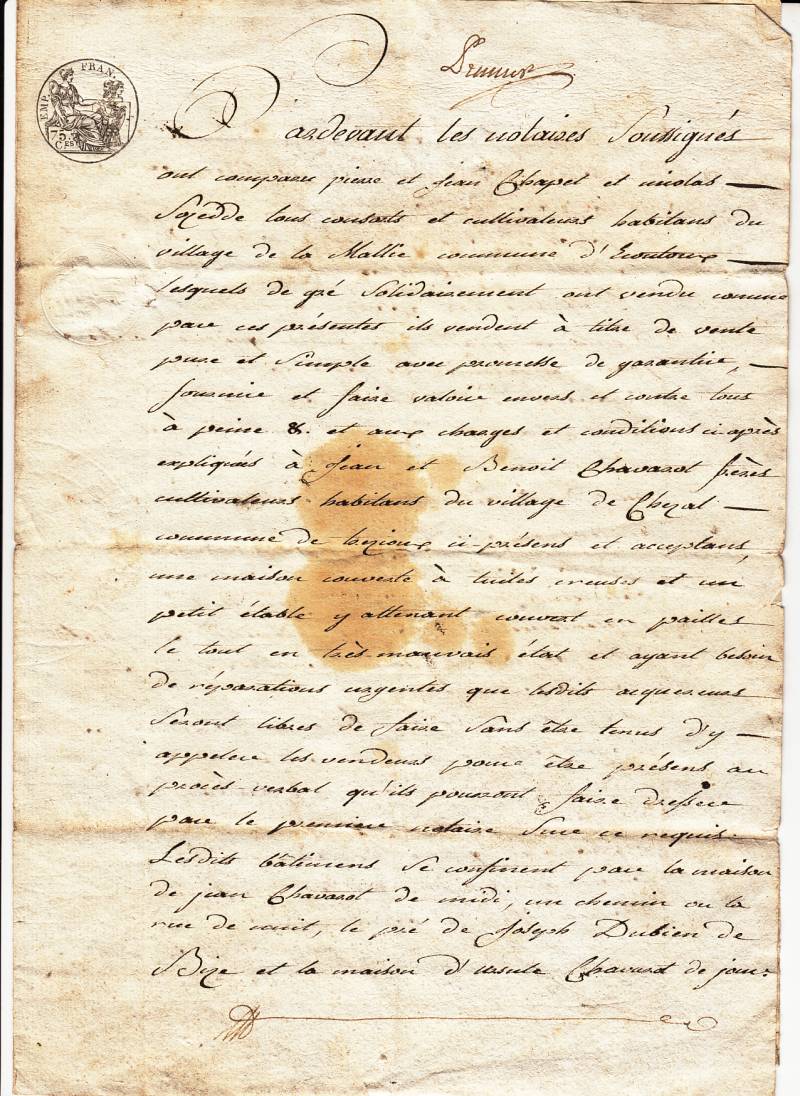 EMP. FRAN.
75.
CES
Pardevant les notaires Soussignés
ont comparu pierre et Jean Chapel et nicolas
tous consorts et cultivateurs habitans du
village de la Mallie commune d'Ecoutoux
Lesquels de gré Solidairement ont vendu comme
par ces présentes ils vendent à titre de vente
pure et Simple avec promesse de garantir,
fournir et faire valoir envers et contre tous
à peine &. et aux charges et conditions ci-après
expliquées à Jean et Benoit Chavarot frères
cultivateurs habitans du village de Chezal
commune de Lezoux ci-présens et acceptans,
une maison couverte à tuiles creuses et un
petit étable y attenant couvert en pailles
le tout en très mauvais état et ayant besoin
de réparations urgentes que lesdits acquereurs
Seront libres de faire sans être tenus d'y
appeler les vendeurs pour être présens au
procès-verbal qu'ils pourront faire dresser
par le premier notaire Sur ce requis.
Lesdits bâtimens se confinent par la maison
de jean Chavarot de midi, un chemin ou la
rue de nuit, le pré de Joseph Dubien de
Bize et la maison d'ursule Chavarot de jour.